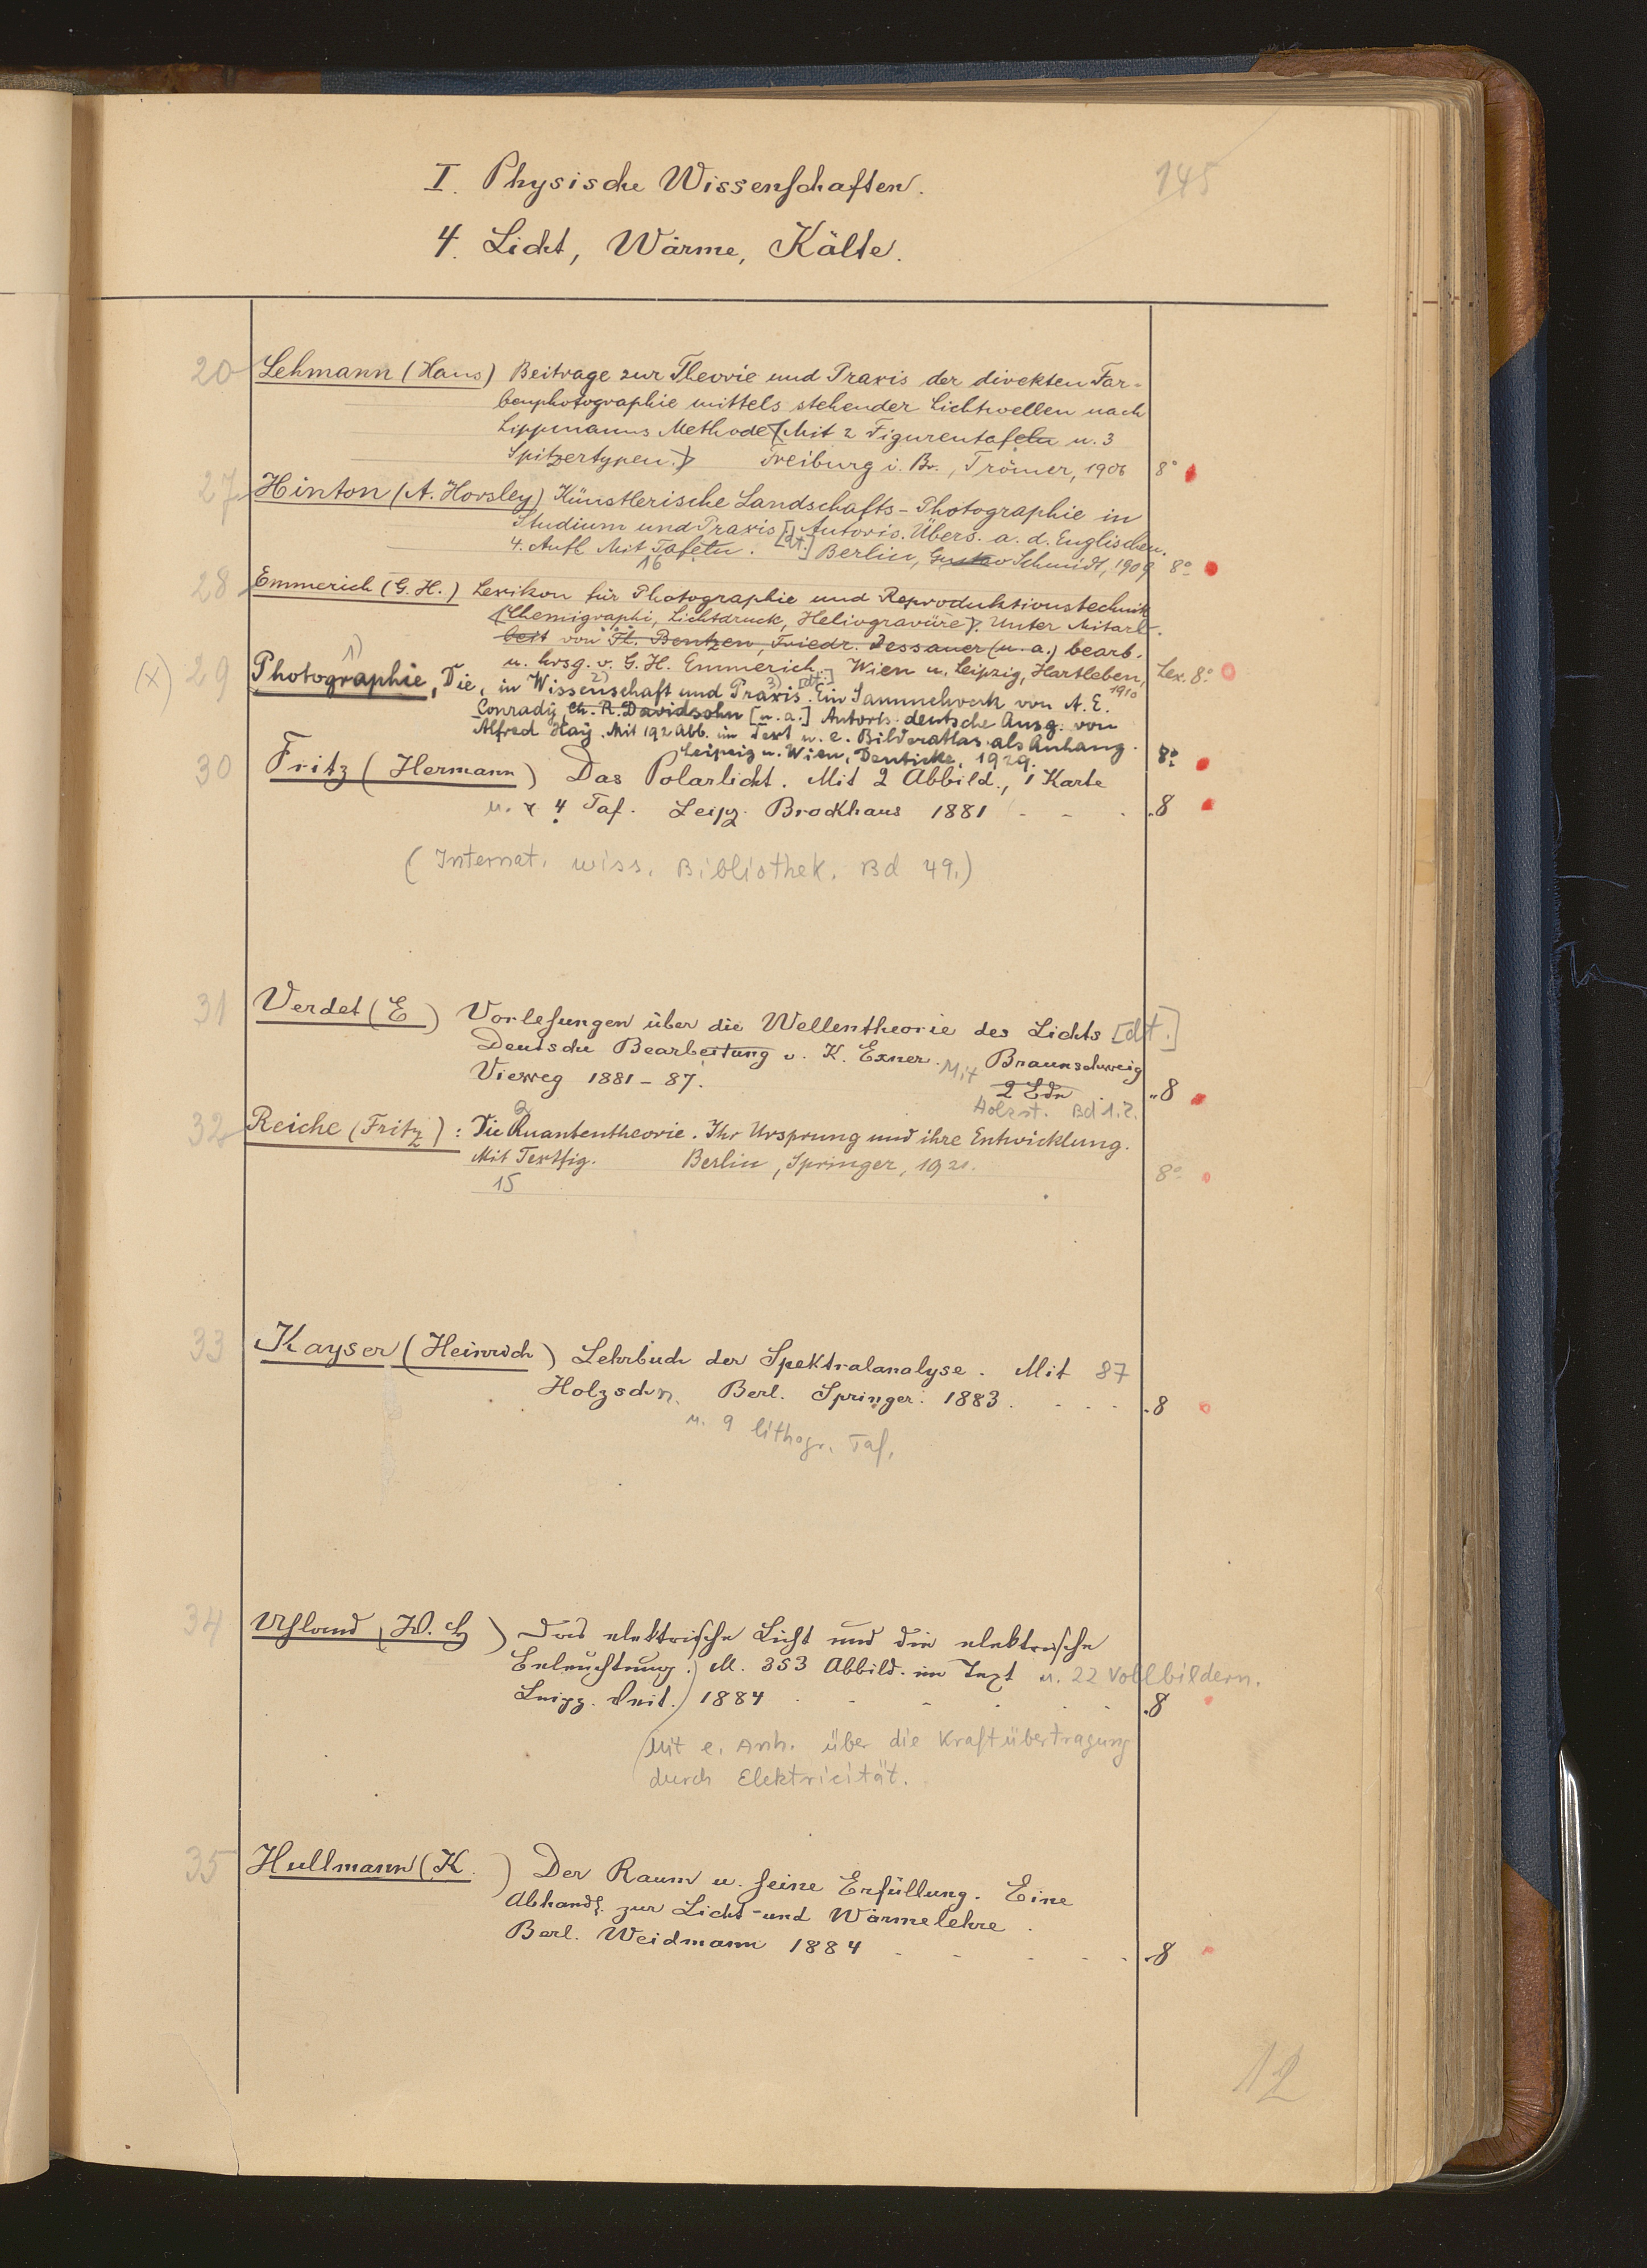 I. Physische Wissenschaften.
145
4. Licht, Wärme, Kälte.
20 Lehmann (Hans) Beitrage zur Theorie und Praxis der direkten Far-
benphotographie mittels stehender Lichtwellen nach
Lippmanns Methode (Mit 2 Figurentafeln u. 3
Spitzertypen.) Freiburg i. Br., Trömer, 1906 8°
27 Hinton (A. Horsley) Künstlerische Landschafts-Photographie in
Studium und Praxis [dt.] Autoris. Übers. a. d. Englischen.
4. Aufl. Mit 16 Tafeln. Berlin, Gustav Schmidt, 1909 8°
28 Emmerich (G. H.) Lexikon für Photographie und Reproduktionstechnik
(Chemigraphi, Lichtdruck, Heliogravüre). Unter Mitarb.
beit von Fl. Bentzen, Friedr. Dessauer (u. a.) bearb.
u. hrsg. v. G. H. Emmerich. Wien u. Leipzig, Hartleben, 1910 Lex. 8°
(x) 29 Photographie, Die, in Wissenschaft und Praxis. [dt.] Ein Sammelwerk von A. E.
1) 2) 3)
Conrady, Ch. R. Davidsohn [u. a.] Autoris. deutsche Ausg. von
Alfred Haÿ. Mit 192 Abb. im Text u. e. Bilderatlas als Anhang.
Leipzig u. Wien, Deuticke, 1929. 8°
30 Fritz (Hermann) Das Polarlicht. Mit 2 Abbild., 1 Karte
u. 4 Taf. Leipz. Brockhaus 1881 - - . 8
(Internat. wiss. Bibliothek. Bd 49.)
31 Verdet (E ) Vorlesungen über die Wellentheorie des Lichts [dt.]
Deutsche Bearbeitung v. K. Exner. Mit Braunschweig
Vieweg 1881-87. 2 Bde " 8
Holzst. Bd 1.2.
32 Reiche (Fritz): Die Quantentheorie. Ihr Ursprung und ihre Entwicklung.
Mit 15 Textfig. Berlin, Springer, 1921. 8°
33 Kayser (Heinrich) Lehrbuch der Spektralanalyse. Mit 87
Holzschn. Berl. Springer. 1883 . . . . 8
u. 9 lithogr. Taf.
34 Uhland (W. H ) Das elektrische Licht und die elektrische
Beleuchtung.) M. 353 Abbild. im Text u. 22 Vollbildern.
Leipz. Veit. 1884 . - - . . 8
(Mit e. Anh. über die Kraftübertragung
durch Elektricität.
35 Hullmann (K. ) Der Raum u. seine Erfüllung. Eine
Abhandl. zur Licht- und Wärmelehre.
Berl. Weidmann 1884 - - - . . 8
12